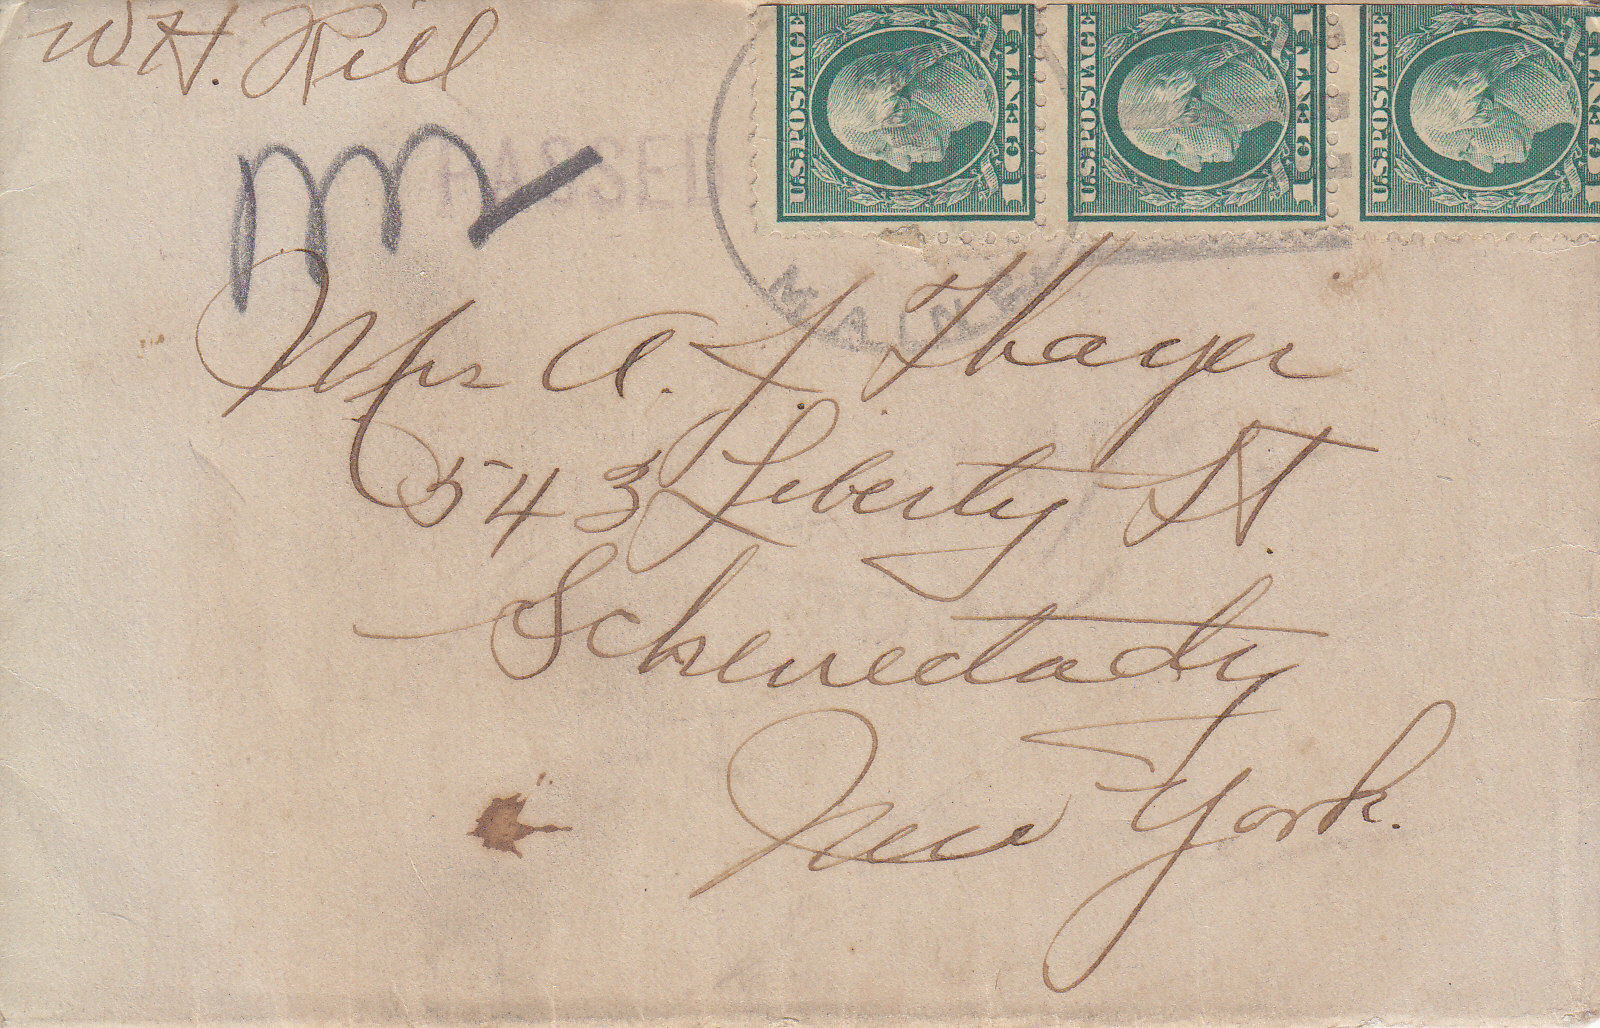 W.H. Hill
PASSED
U.S. POSTAGE
1 CENT 1
U.S. POSTAGE
1 CENT 1
U.S. POSTAGE
1 CENT
MAINE
Mrs A. L. Thayer
543 Liberty St.
Schenectady
New York.